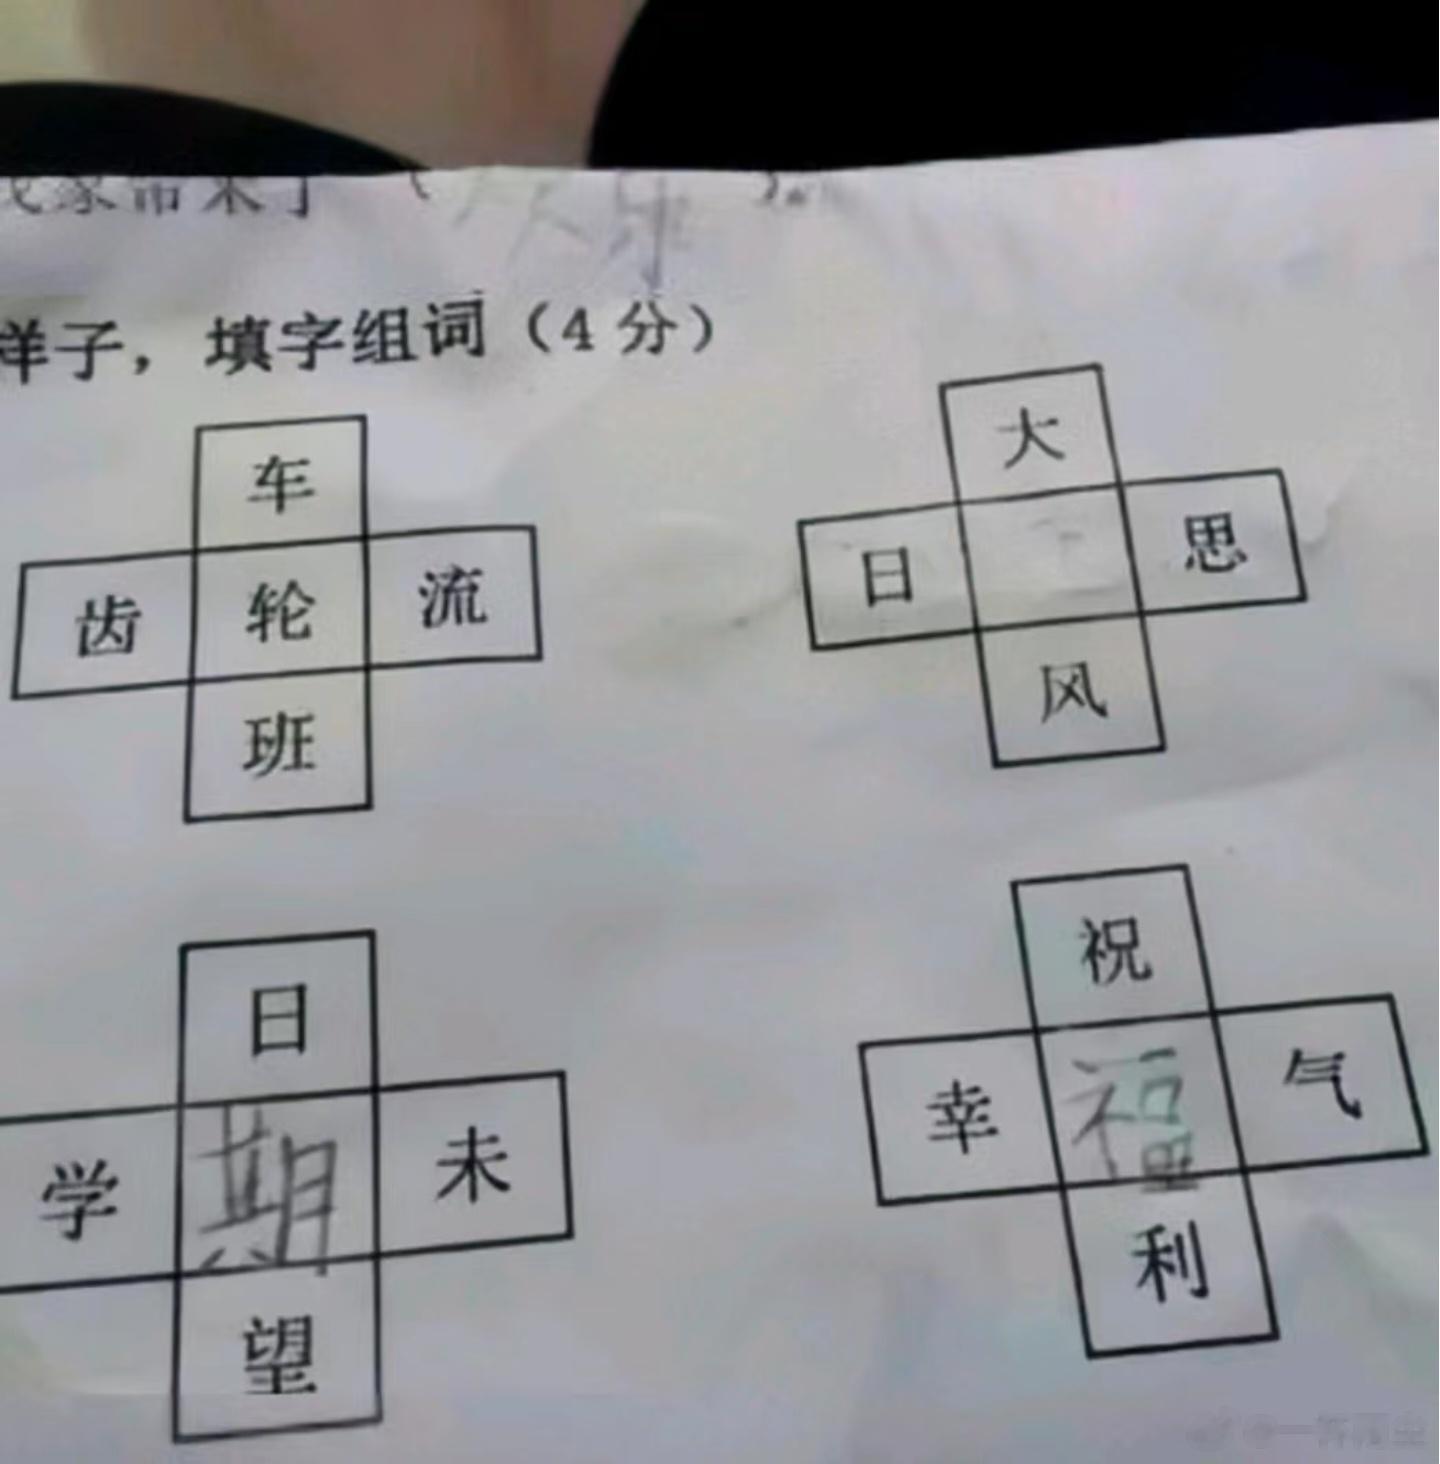 家带来了（ ）。
样子，填字组词（4分）
车
齿 轮 流
班
大
日 思
风
日
学 期 未
望
祝
幸 福 气
利